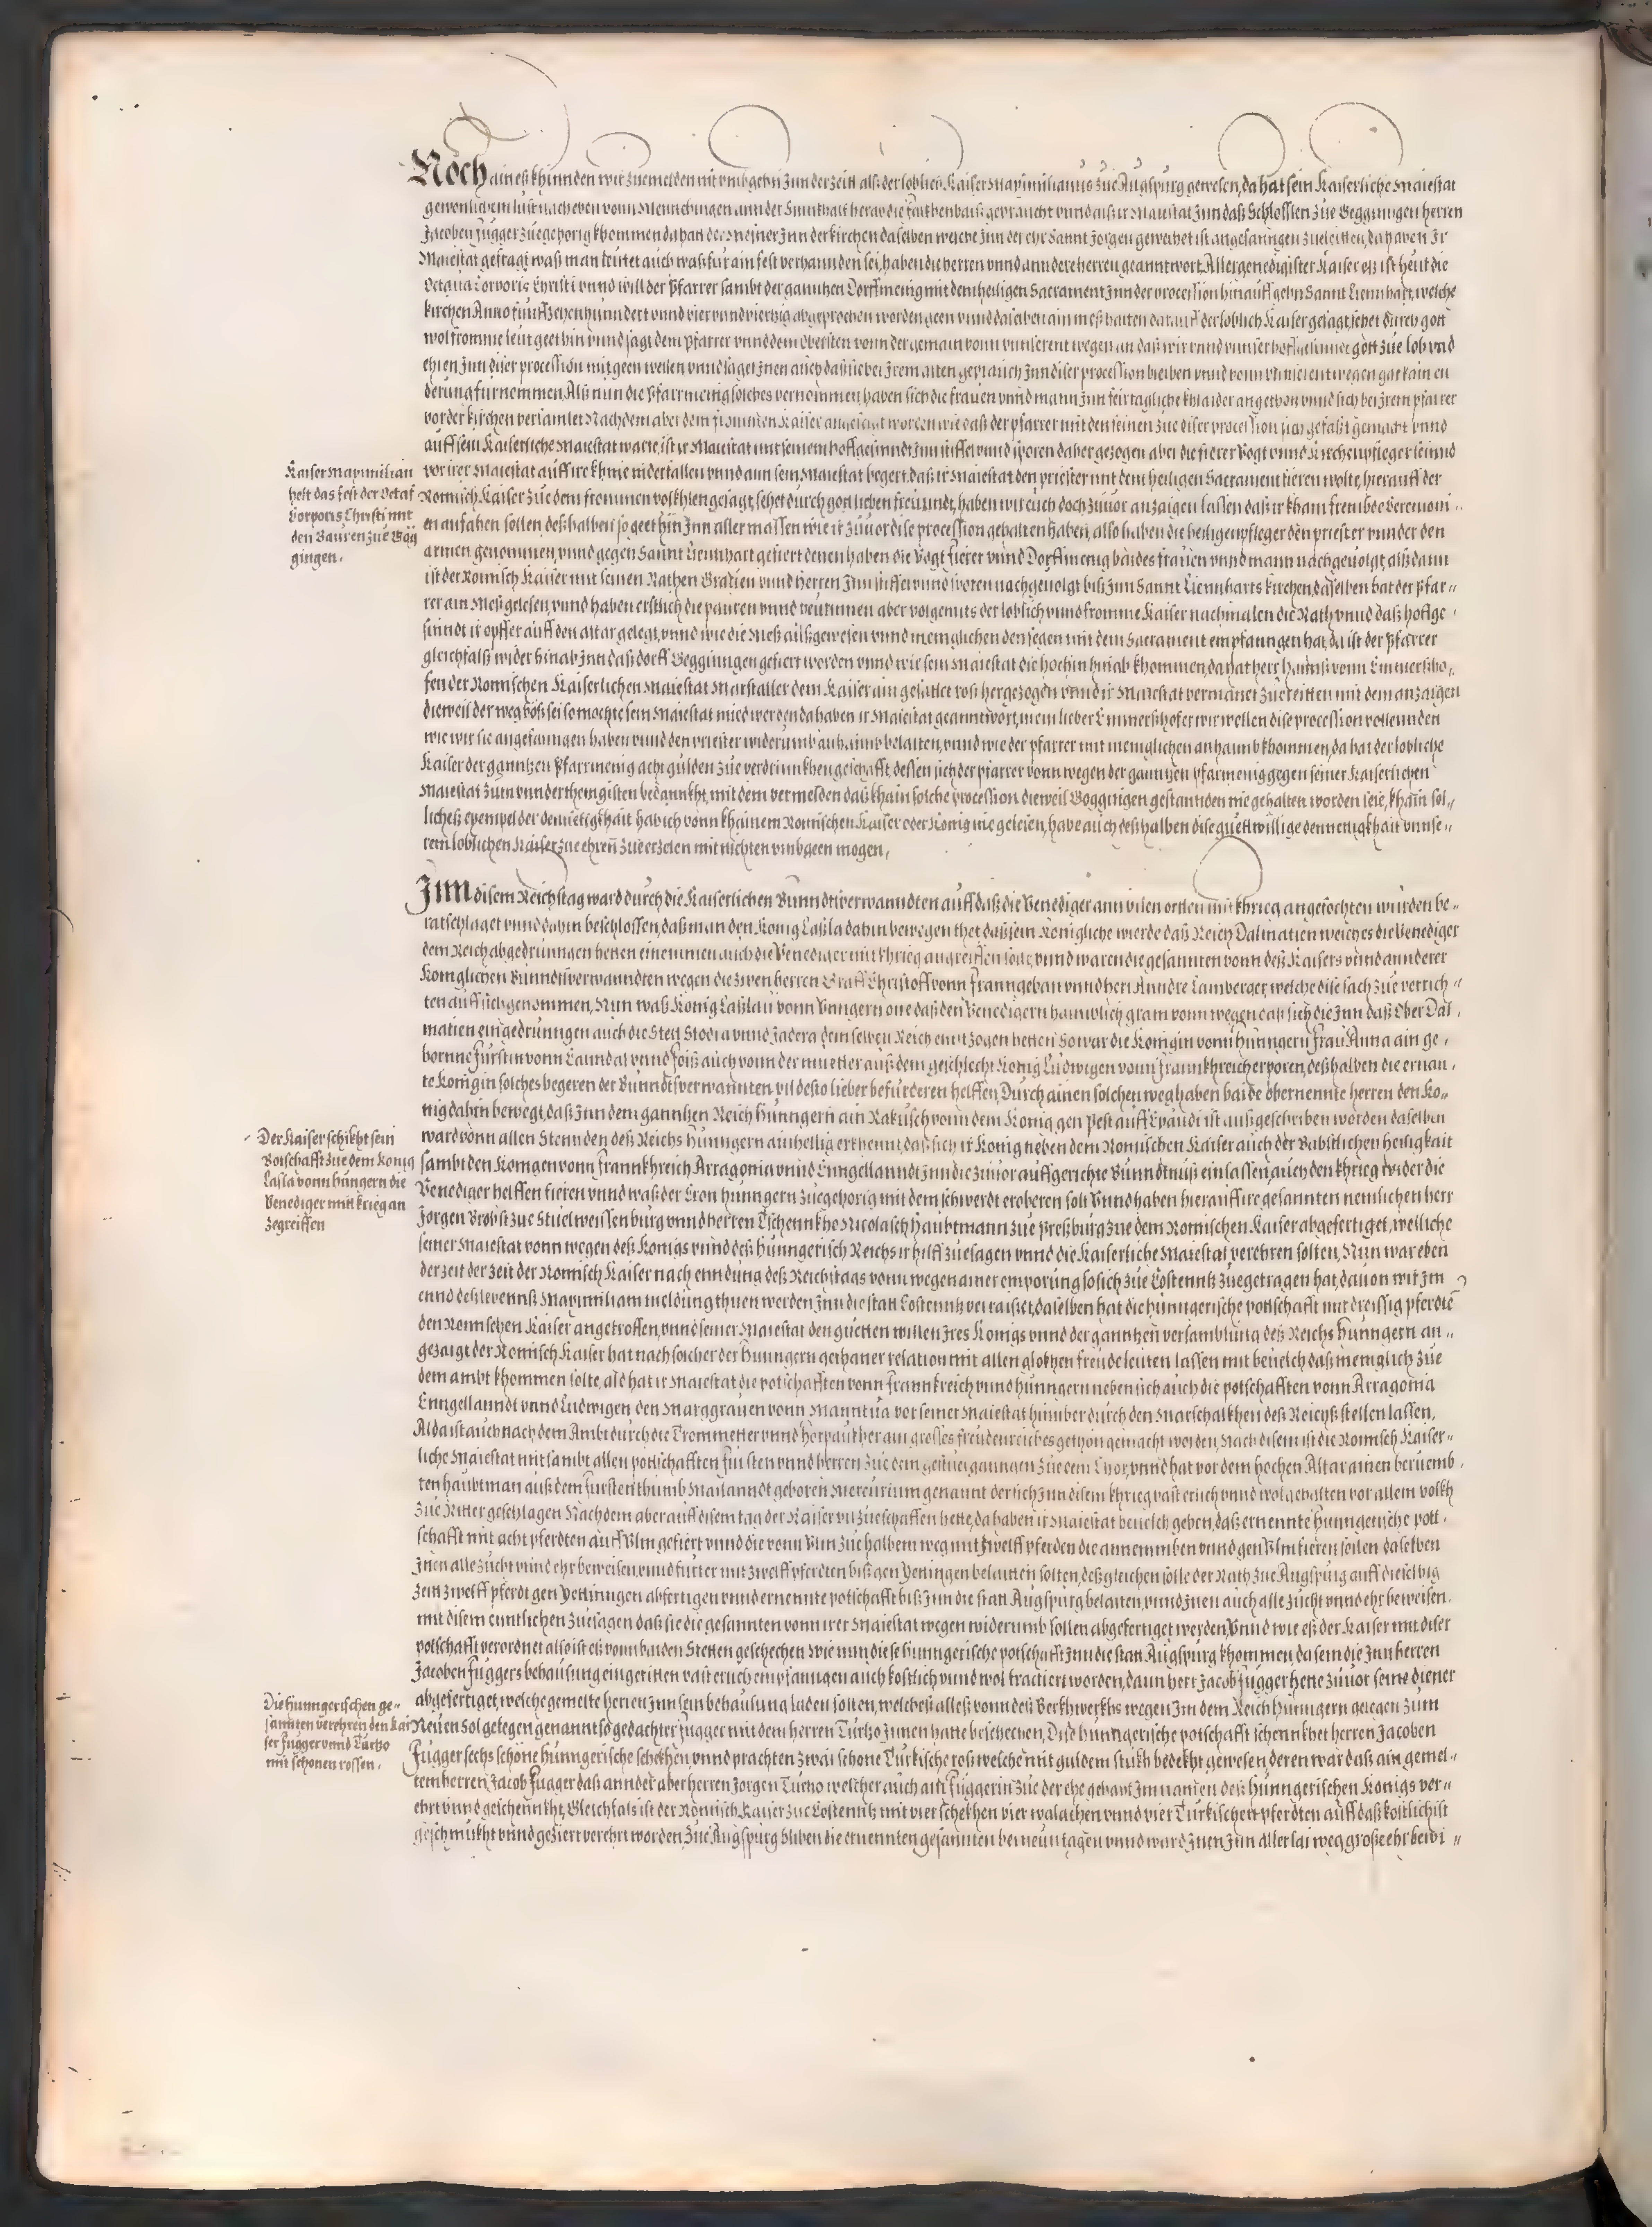 Noch aineß khinnden wir zuemelden nit umbgehn Inn der zeitt alß der loblich Kaiser Maximilianus zue Augspurg gewesen, da hat sein Kaiserliche Maiestat
gewonlichem lust nach eben vonn Mennchingen ann der Sinnthalt herab die gebraucht unnd alß ir Maiestat Inn daß Schlosslen zue Gegginngen herren
Jacoben Fugger zuegehorig khommen da hatt der Meßner Inn der kirchen daselben welche Inn der ehr Sannt Jorgen geweihet ist angefanngen zue leitten, da haben Ir
Maiestat gefragt waß man leutet auch waß fur ain fest verhannden sei, haben die herren unnd anndere herren geanntwort Allergenedigister Kaiser eß ist heut die
Octaua Corporis Christi unnd will der Pfarrer sambt der ganntzen Dorffmenig mit dem heiligen Sacrament Inn der procession hinauß gehn Sannt Liennhart, welche
kirchen Anno funffzehenhunndert unnd vierunndvierzig abgeprochen worden geen unnd daselben ain meß halten darauff der loblich Kaiser gesagt, sehet durch gott
wol fromme leut geet hin unnd sagt dem Pfarrer unnd dem obersten vonn der gemain vonn unnserent wegen an daß wir unnd unnser hoffgesinnet gott zue lob und
ehren Inn diser procession mit geen wellen unnd saget Inen auch daß sie bei Irem alten geprauch Inn diser procession bleiben unnd vonn unnserent wegen gar kain en
derung furnemmen, Alß nun die Pfarrmenig solches vernommen, haben sich die frauen unnd mann Inn feirtagliche khlaider angethon unnd sich bei Irem pfarrer
vor der kirchen versamlet Nachdem aber dem frommen Kaiser angezeigt worden wie daß der pfarrer mit den seinen zue diser procession sich gefaßt gemacht unnd
auff sein Kaiserliche Maiestat warte, ist ir Maiestat mit seinem hoffgesinndt Inn stiffel unnd sporen daher gezogen aber die fierer Vogt unnd Kirchenpfleger seinnd
vor irer Maiestat auff ire khnie niderfallen unnd ann sein Maiestat begert, daß ir Maiestat den priester mit dem heiligen Sacrament fieren wolte, hierauff der
Romisch Kaiser zue dem frommen volkhlen gesagt, sehet durch gott lieben freundt, haben wir euch doch zuuor anzaigen lassen daß ir kham frembde Ceremoni..
en anfahen sollen deßhalben so geet hin Inn aller massen wie ir zuuor dise procession gehalten haben, also haben die heiligenpfleger den priester unnder den
armen genommen, unnd gegen Sannt Liennhart gefiert denen haben die Vogt fierer unnd Dorffmenig baides frauen unnd mann nachgeuolgt, alß dann
ist der Romisch Kaiser mit seinen Rathen Grauen unnd herren Inn stiffel unnd sporen nachgeuolgt biß Inn Sannt Liennharts kirchen, daselben hat der Pfar..
rer ain Meß gelesen, unnd haben erstlich die pauren unnd peurinnen aber volgennts der loblich unnd fromme Kaiser nachmalen die Rath unnd daß hoffge,
sinndt ir opffer auff den altar gelegt, unnd wie die Meß auß gewesen unnd meniglichen den segen mit dem Sacrament empfanngen hat, da ist der Pfarrer
gleichfalß wider hinab Inn daß dorff Gegginngen gefiert worden unnd wie sein Maiestat die hoch hin hinab khommen, da hat herr hannß vonn Emmerßho,,
fen der Romischen Kaiserlichen Maiestat Marstaller dem Kaiser ain gesatlet roß hergezogen unnd ir Maiestat vermanet zue reitten mit dem anzaigen
dieweil der weg böß sei so mochte sein Maiestat mied werden da haben ir Maiestat geanntwort, mein lieber Emmerßhofer wir wellen dise procession vollennden
wie wir sie angefanngen haben unnd den priester widerumb anhaimb belaiten, unnd wie der pfarrer mit meniglichen anhaimb khommen, da hat der lobliche
Kaiser der ganntzen Pfarrmenig acht gulden zue verdrinnkhen geschafft, dessen sich der pfarrer vonn wegen der ganntzen pfarmenig gegen seiner Kaiserlichen
Maiestat zum unnderthenigisten bedannkht, mit dem vermelden daß khain solche procession dieweil Gogginngen gestannden nie gehalten worden seie, khain sol,,
licheß exempel der demietigkhait hab ich vonn khainem Romischen Kaiser oder Konig nie gelesen, habe auch deßhalben dise guettwillige demietigkhait unnse..
rem loblichen Kaiser zue ehren zue erzelen mit nichten umbgeen mogen,
Kaiser Maximilian
helt das fest der Octaf
Corporis Christi mit
den Bauren zue Gög
gingen.
Inn disem Reichstag ward durch die Kaiserlichen Bunndtsverwanndten auff daß die Venediger ann vilen orrten mit khrieg angefochten wurden be..
ratschlaget unnd dahin beschlossen, daß man den Konig Laßla dahin bewegen thet daß sein Konigliche wierde daß Reich Dalmatien welches die Venediger
dem Reich abgedrunngen hetten einemmen auch die Venediger mit khrieg angreiffen solt, unnd waren die gesannten vonn deß Kaisers unnd annderer
Koniglichen Bunndtsverwanndten wegen die zwen herren Graff Christoff vonn Franngeban unnd herr Anndre Lamberger, welche dise sach zue verrich,,
ten auff sich genommen, Nun waß Konig Laßlau vonn Unngern one daß den Venedigern haimblich gram vonn wegen daß sich die Inn daß Ober Dal,
matien eingedrunngen auch die Stett Stodia unnd Jadera dem selben Reich enntzogen hetten So war die Konigin vonn Hunngern Frau Anna ain ge,
bornne Furstin vonn Canndal unnd Foiß auch vonn der muetter auß dem geschlecht Konig Ludwigen vonn Frannkhreich erporen, deßhalben die ernan,
te Konigin solches begeren der Bunndtsverwannten vil desto lieber befurderen helffen, Durch ainen solchen weg haben baide obernennte herren den Ko,,
nig dahin bewegt, daß Inn dem ganntzen Reich Hunngern ain Rakusch vonn dem Konig gen Pest auff Epandi ist außgeschriben worden daselben
ward vonn allen Stennden deß Reichs Hunngern ainhellig erkhennt, daß sich ir Konig neben dem Romischen Kaiser auch der Babstlichen heiligkait
sambt den Konigen vonn Frannkhreich Arragonia unnd Enngellanndt Inn die zuuor auffgerichte Bunndtnuß einlassen, auch den khrieg wider die
Venediger helffen fieren unnd waß der Cron Hunngern zuegehorig mit dem schwerdt eroberen solt Unnd haben hierauff ire gesannten nemlichen herr
Jorgen Brobst zue Stuelweissenburg unnd herren Tschennkho Nicolasch Haubtmann zue Preßburg zue dem Romischen Kaiser abgefertiget, welliche
seiner Maiestat vonn wegen deß Konigs unnd deß Hunngerisch Reichs ir hilff zuesagen unnd die Kaiserliche Maiestat verehren solten, Nun war eben
der zeit der zeit der Romisch Kaiser nach enndung deß Reichstags vonn wegen ainer emporung so sich zue Costenntz zuegetragen hat, dauon wir Im
ennd deß lebennß Maximiliani meldung thuen werden Inn die statt Costenntz verraiset, daselben hat die Hunngerische pottschafft mit dreissig pferdte
den Romischen Kaiser angetroffen, unnd seiner Maiestat den guetten willen Ires Konigs unnd der ganntzen versamblung deß Reichs Hunngern an,,
gezaigt der Romisch Kaiser hat nach solcher der Hunngern gethaner relation mit allen glokhen freude leuten lassen mit beuelch daß meniglich zue
dem ambt khommen solte, ald hat ir Maiestat die potschafften vonn Frannkreich unnd Hunngern neben sich auch die potschafften vonn Arragonia
Enngellanndt unnd Ludwigen den Marggrauen vonn Manntua vor seiner Maiestat hinuber durch den Marschalkhen deß Reichß stellen lassen,
Alda ist auch nach dem Ambt durch die Trommetter unnd Herpaukher ain grosses freudenreiches gethon gemacht worden, Nach disem ist die Romisch Kaiser,,
liche Maiestat mit sambt allen potschafften Fursten unnd herren zue dem gestuel ganngen zue dem Chor, unnd hat vor dem hochen Altar ainen beruemb,
ten haubtman auß dem Furstenthumb Mailanndt geboren Mercurium genannt der sich Inn disem khrieg vast erlich unnd wol gehalten vor allem volkh
zue Ritter geschlagen Nachdem aber auff disem tag der Kaiser vil zue schaffen hette, da haben ir Maiestat beuelch geben, daß ernennte Hunngerische pott,
schafft mit acht pferdten auff Ulm gefiert unnd die vonn Ulm zue halbem weg mit zwelff pferden die annemmen unnd gen Ulm fieren sollen daselben
Inen alle zucht unnd ehr beweisen, unnd furter mit zwelff pferdten biß gen Yettingen belaitten solten, deßgleichen solle der Rath zue Augspurg auff dieselbig
zeit zwelff pferdt gen Yettinngen abfertigen unnd ernennte potschafft biß Inn die statt Augspurg belaiten, unnd Inen auch alle zucht unnd ehr beweisen,
mit disem enntlichen zuesagen daß sie die gesannten vonn irer Maiestat wegen widerumb sollen abgefertiget werden, Unnd wie eß der Kaiser mit diser
potschafft verordnet also ist eß vonn baiden Stetten geschechen Wie nun diese Hunngerische potschafft Inn die statt Augspurg khommen, da sein die Inn herren
Jacoben Fuggers behausung eingeritten vast erlich empfanngen auch kostlich unnd wol tractiert worden, dann herr Jacob Fugger hette zuuor seine diener
abgefertiget, welche gemelte herren Inn sein behausung laden solten, welches alles vonn deß Berkhwerkhs wegen Im dem Reich Hunngern gelegen zum
Neuen Sol gelegen genannt so gedachter Fugger mit dem herren Turtzo Innen hatte beschechen, Dise hunngerische potschafft schennkhet herren Jacoben
Fugger sechs schöne hunngerische schekhen unnd prachten zwai schone Turkische roß welche mit guldem stukh bedekht gewesen, deren war daß ain gemel,,
tem herren Jacob Fugger daß annder aber herren Jorgen Turtzo welcher auch ain Fuggerin zue der ehe gehabt Im namen deß Hunngerischen Konigs ver,,
ehrt unnd geschennkht, Gleichfals ist der Romisch Kaiser zue Costenntz mit vier schekhen vier walachen unnd vier Turkischen pferdten auff daß kostlichist
geschmukht unnd geziert verehrt worden Zue Augspurg bliben die ernennten gesannten bei neun tagen unnd ward Inen Inn allerlai weg große ehr bewi,,
Der Kaiser schikht sein
Botschafft zue dem Konig
Lasla vonn hungern die
Venediger mit krieg an
zegreiffen
Die hunngerischen ge,,
sannten verehren den Kai
ser Fugger unnd Turtzo
mit schonen rossen.